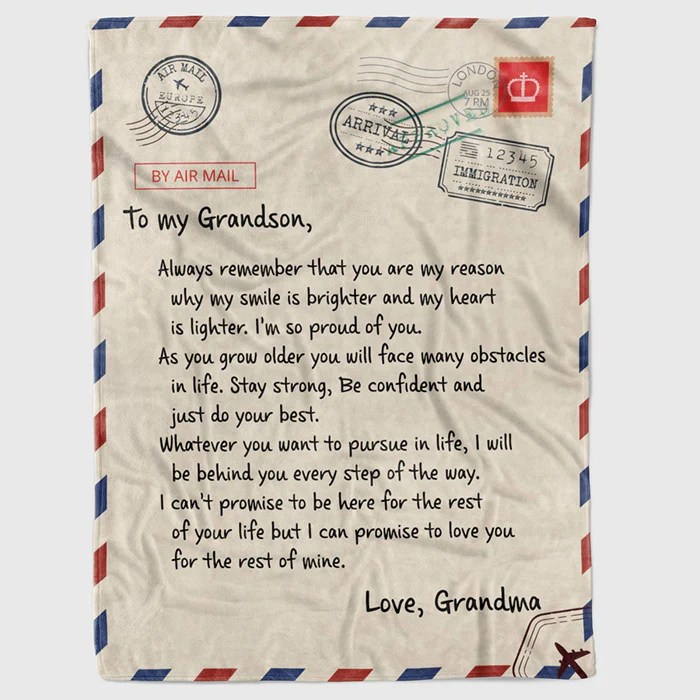 AIR MAIL
EUROPE
12345
LONDON
AUG 25
7 RM
ARRIVAL
12345
IMMIGRATION
BY AIR MAIL
To my Grandson,
Always remember that you are my reason
why my smile is brighter and my heart
is lighter. I'm so proud of you.
As you grow older you will face many obstacles
in life. Stay strong, Be confident and
just do your best.
Whatever you want to pursue in life, I will
be behind you every step of the way.
I can't promise to be here for the rest
of your life but I can promise to love you
for the rest of mine.
Love, Grandma